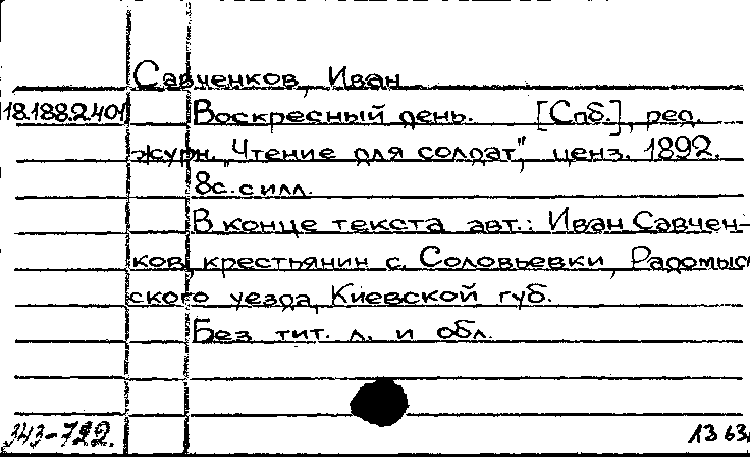 Савченков, Иван
18.188.2.401 Воскресный день. [Спб.], ред.
журн. „Чтение для солдат", ценз. 1892.
8с. с илл.
В конце текста авт.: Иван Савчен-
ков, крестьянин с. Соловьевки, Радомыс
ского уезда, Киевской губ.
Без тит. л. и обл.
343-722. 13 63